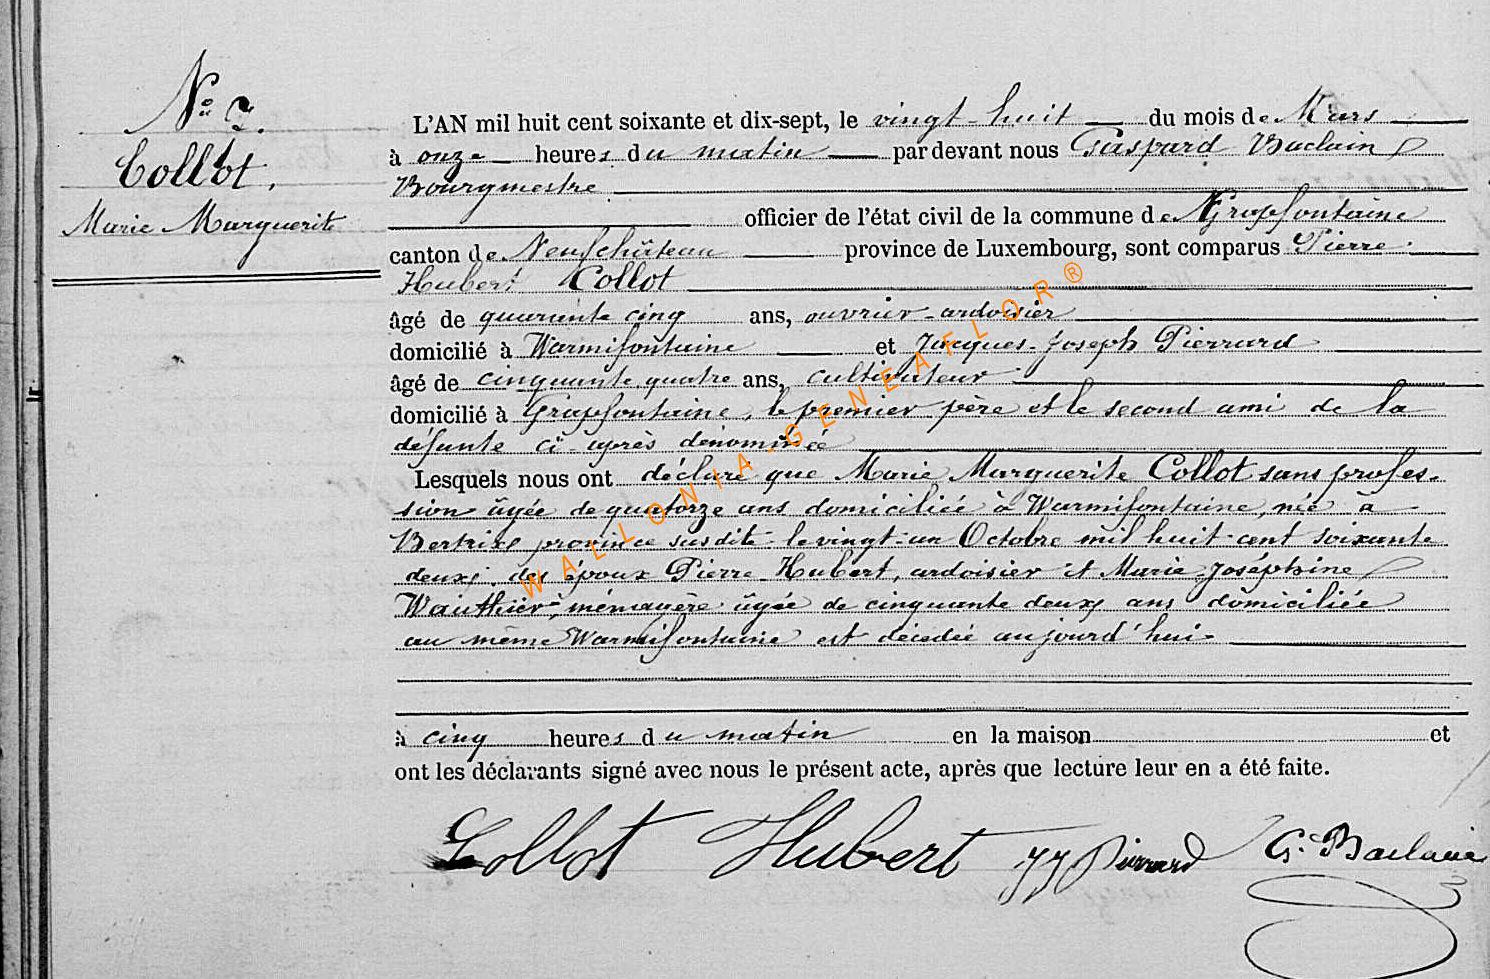 N° 7.
Collot.
Marie Marguerite
L'AN mil huit cent soixante et dix-sept, le vingt-huit du mois de Mars
à onze heures du matin par devant nous Gaspard Baclain
Bourgmestre
officier de l'état civil de la commune de Grapfontaine
canton de Neufchâteau province de Luxembourg, sont comparus Pierre
Hubert Collot
âgé de quarante cinq ans, ouvrier-ardoisier
domicilié à Warmifontaine et Jacques-Joseph Pierrard
âgé de cinquante quatre ans, cultivateur
domicilié à Grapfontaine, le premier père et le second ami de la
défunte ci-après dénommée
Lesquels nous ont déclaré que Marie Marguerite Collot sans profes-
sion âgée de quatorze ans domiciliée à Warmifontaine, née à
Bertrix province susdite le vingt-un Octobre mil huit cent soixante
deux, des époux Pierre Hubert, ardoisier et Marie Joséphine
Wauthier, ménagère âgée de cinquante deux ans domiciliée
au même Warmifontaine est décédée aujourd'hui
à cinq heures du matin en la maison et
ont les déclarants signé avec nous le présent acte, après que lecture leur en a été faite.
Collot Hubert JJ Pierrard G. Baclain
WALLONIA-GENEAFLOR®